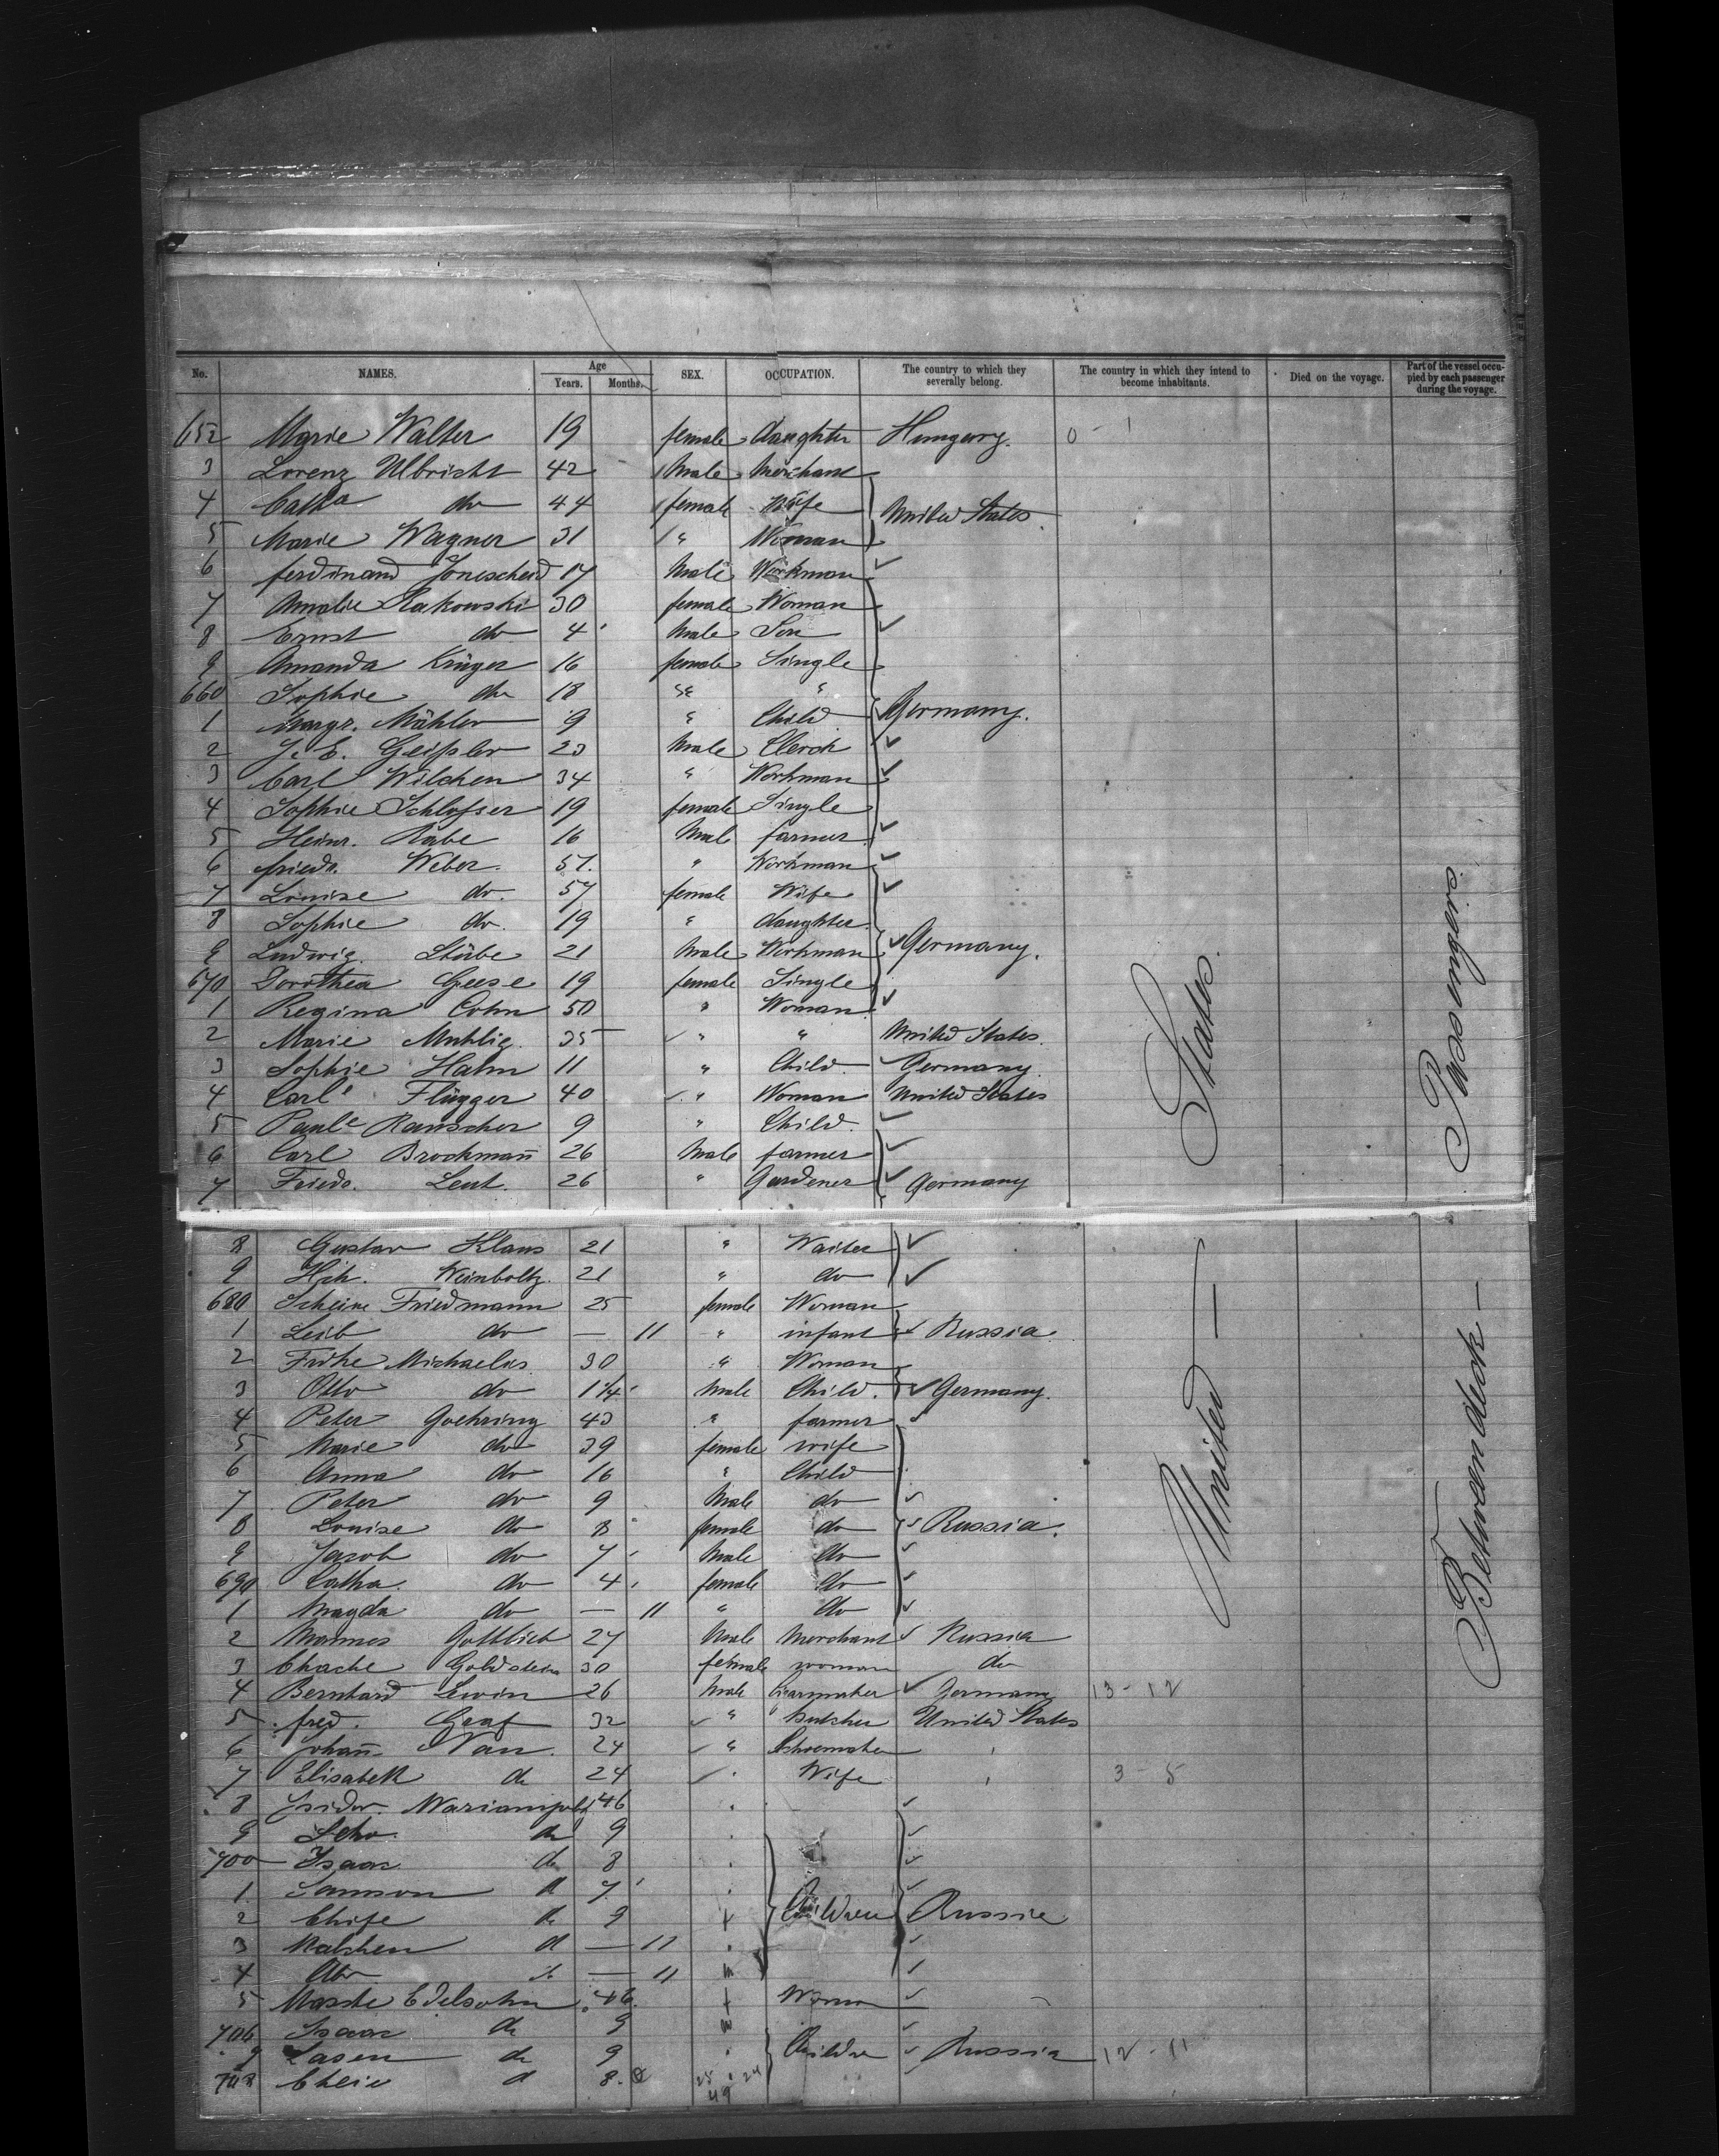 No. NAMES. Age Years. Months. SEX. OCCUPATION. The country to which they severally belong. The country in which they intend to become inhabitants. Died on the voyage. Part of the vessel occupied by each passenger during the voyage.
652 Marie Walter 19 female daughter Hungary. 0 - 1
3 Lorenz Ulbricht 42 Male Merchant
4 Catha do 44 female Wife United States.
5 Marie Wagner 31 " Woman
6 ferdinand 17 Male Workman
7 Amalie Rakowski 30 female Woman
8 Ernst do 4 Male Son
9 Amanda Krüger 16 female Single
660 Sophie do 18 " "
1 Margr. Mähler 9 " Child Germany.
2 J. E. Geißler 23 Male Clerck
3 Carl Wilchen 34 " Workman
4 Sophie Schlosser 19 female Single
5 Heinr. Rabe 16 Male farmer
6 friedr. Weber. 57. " Workman
7 Louise do. 57 female Wife
8 Sophie do. 19 " daughter
9 Ludwig. Stübe 21 Male Workman Germany.
670 Dorothea Geese 19 female Single
1 Regina Cohn 50 " Woman
2 Marie Muhlig. 35 " " United States.
3 Sophie Hahn 11 " Child Germany.
4 Carle Flügger 40 " Woman United States
5 Paule Rauscher 9 " Child.
6 Carl Brockmañ 26 Male farmer
7 Friedr. Leut. 26 " Gardener Germany
8 Gustav Klaus 21 " Waiter
9 Hch. Weinboltz. 21 " do
680 Scheine Friedmann 25 female Woman
1 Leib do — 11 " infant Russia
2 Fritze Michaelis 30 " Woman
3 Otto do 1 1/4 Male Child. Germany.
4 Peter Goehring 43 " farmer
5 Marie do 39 female wife
6 Anna do 16 " Child
7 Peter do 9 Male do
8 Louise do 8 female do Russia.
9 Jacob do 7 Male do
690 Catha. do 4 female do
1 Magda do — 11 " do
2 Mannes Gottlieb 27 Male Merchant Russia
3 Chache Goldstein 30 female woman do
4 Bernhard Lewin 26 Male Cigarmaker Germany 13 - 12
5 fred. Graf 32 " butcher United States
6 Johañ Nau. 24 " Schoemaker
7 Elisabeth do 24 Wife 3 - 5
8 Isidor. Mariampolski 46
9 do 9
700 Isaac do 8
1 Samson do 7
2 Chife do 9 Children Russia
3 Malchen do — 11
4 do — 11 m
5 Edelsohn 46 Woman
706 Isaac do 9
7 Lasen do 9 Children Russia 12 - 11
708 do 8.
25 24
49
United States.
Between deck Passengers.